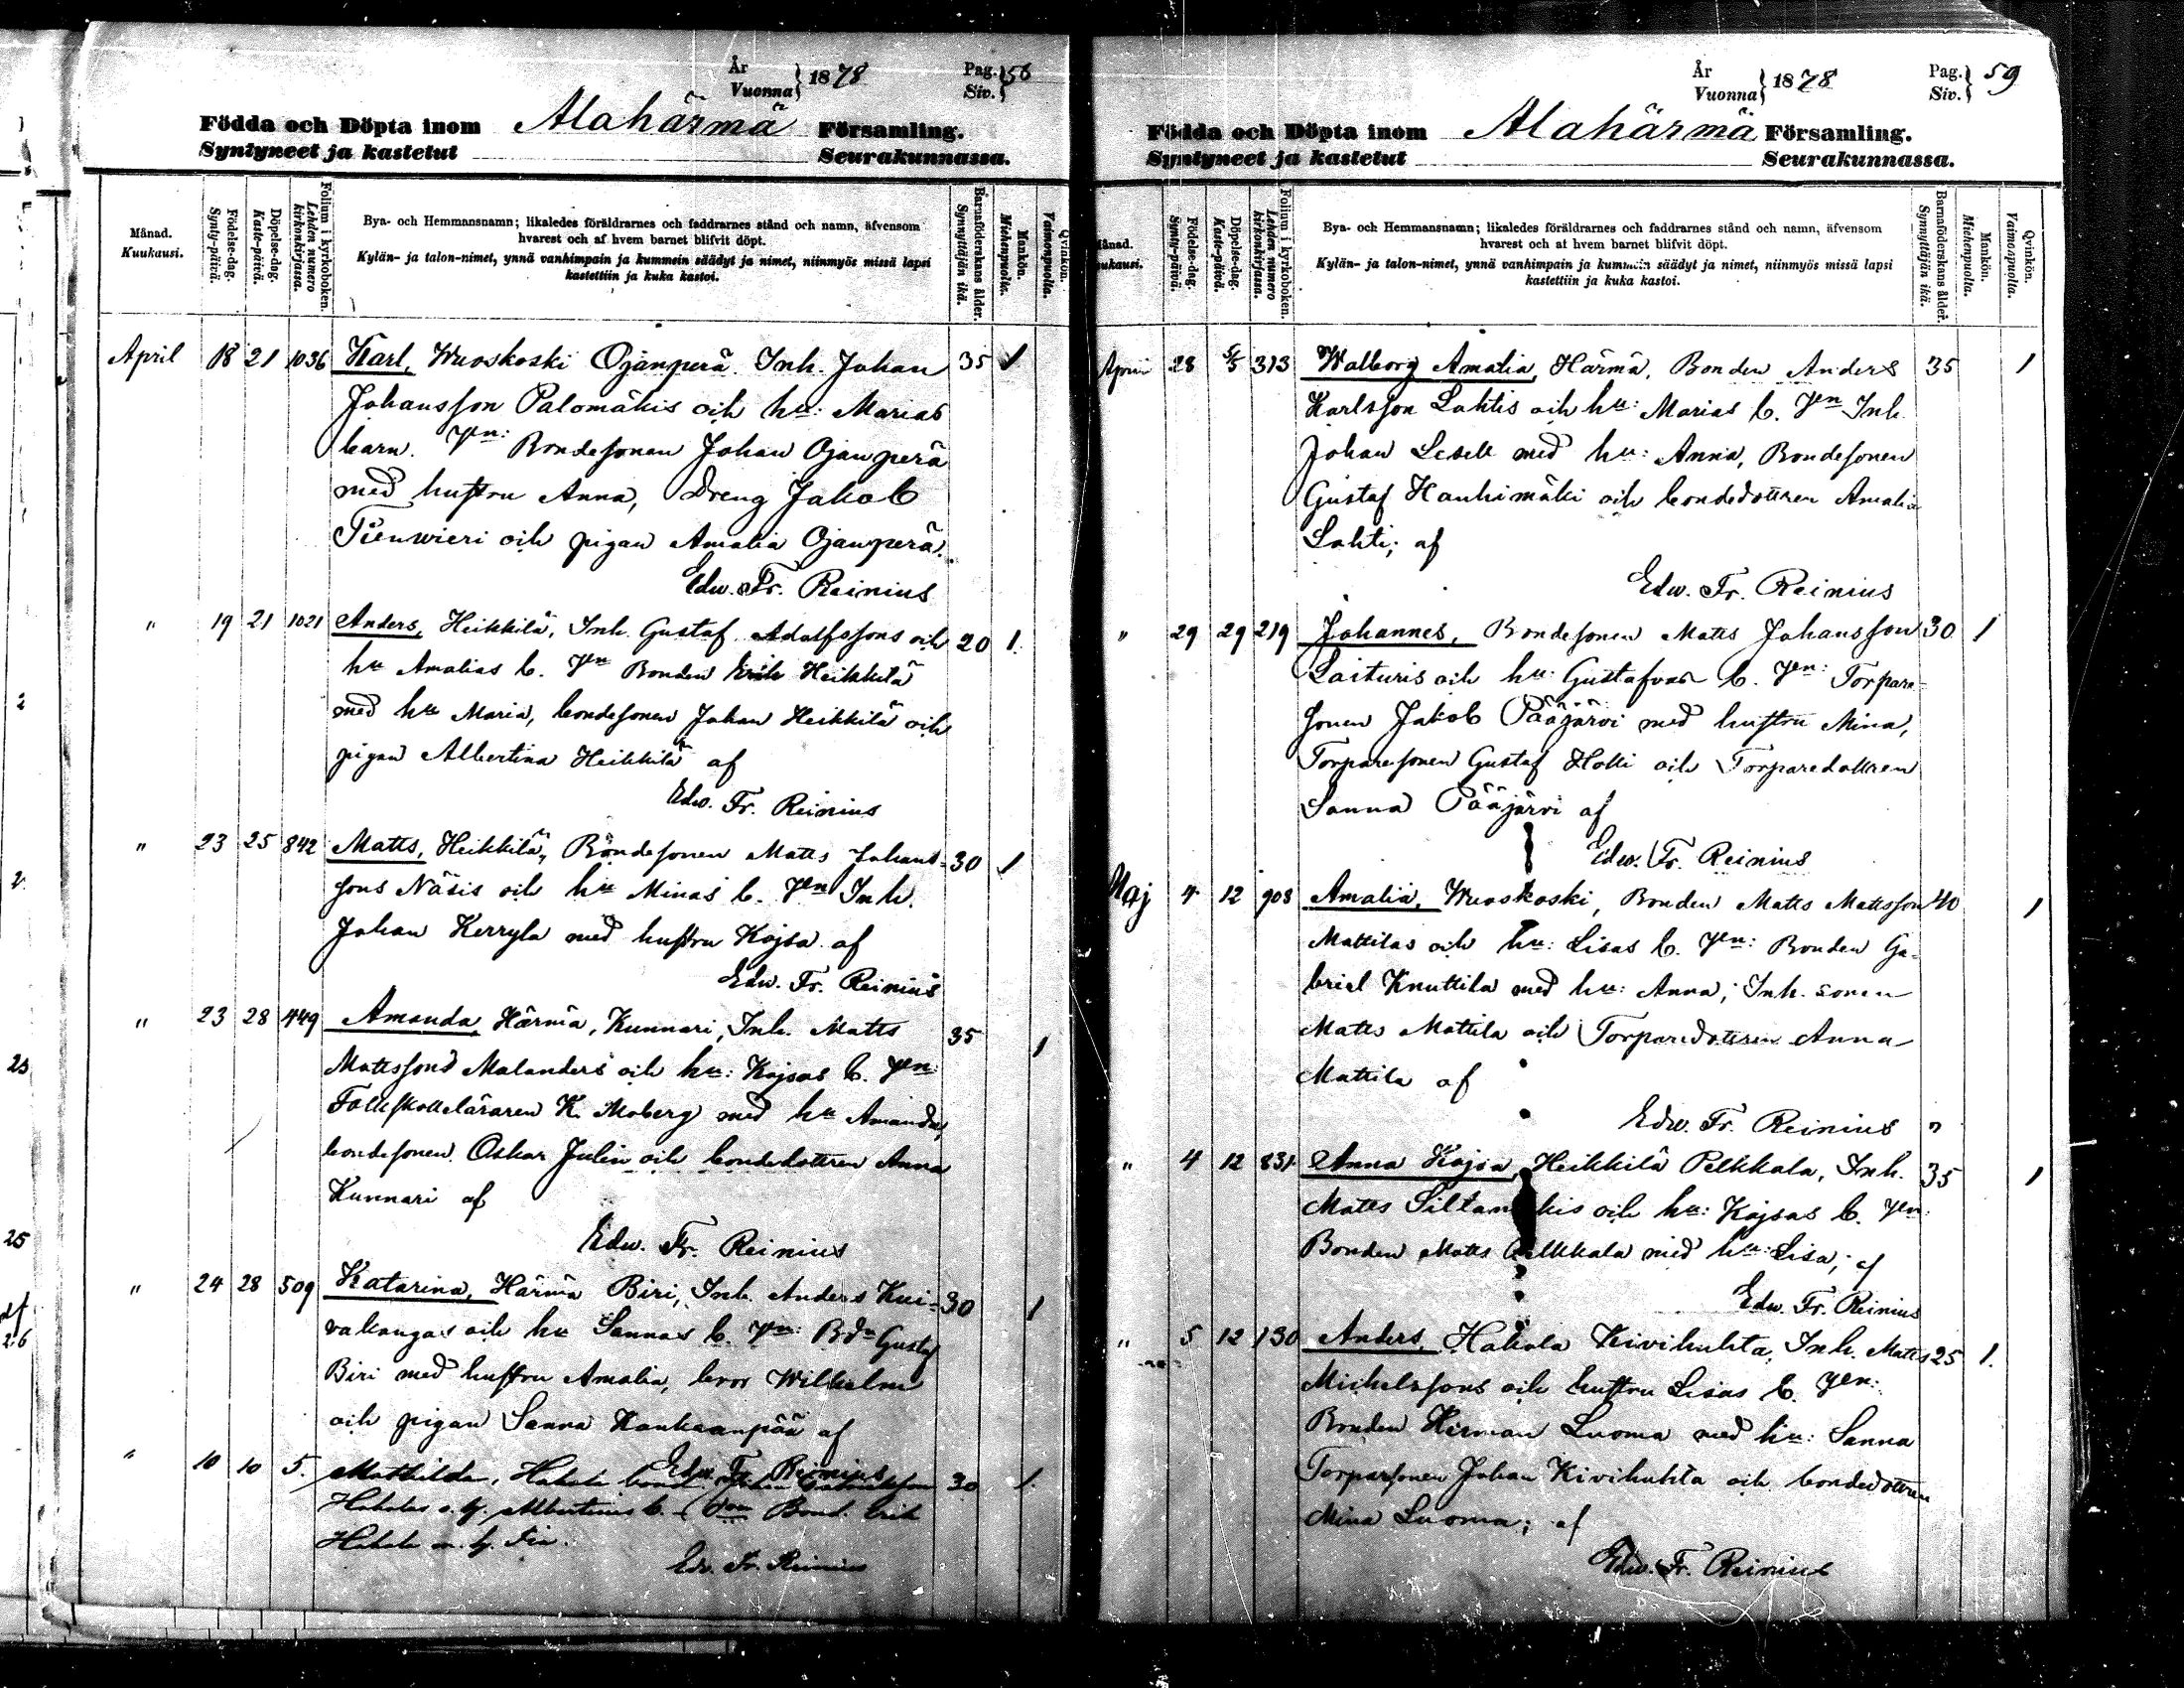 År
Vuonna } 1878
Pag.
Siv. } 58
Födda och Döpta inom Alahärmä Församling.
Syntyneet ja kastetut Seurakunnassa.
Månad.
Kuukausi.
Födelse-dag.
Synty-päivä.
Döpelse-dag.
Kaste-päivä.
Folium i kyrkoboken.
Lehden numero kirkonkirjassa.
Bya- och Hemmansnamn; likaledes föräldrarnes och faddrarnes stånd och namn, äfvensom
hvarest och af hvem barnet blifvit döpt.
Kylän- ja talon-nimet, ynnä vanhimpain ja kummein säädyt ja nimet, niinmyös missä lapsi
kastettiin ja kuka kastoi.
Barnaföderskans ålder.
Synnyttäjän ikä.
Mankön.
Miehenpuolta.
Qvinkön.
Vaimonpuolta.
April 18 21 1036 Karl, Wuoskoski Ojanperä. Inh. Johan 35 1
Johansson Palomäkis och hu: Marias
barn. Vn: Bondesonen Johan Ojanperä
med hustru Anna, Dreng Jakob
Tienwieri och pigan Amalia Ojanperä.
Edw. Fr. Reinius
" 19 21 1021 Anders, Heikkilä, Inh. Gustaf Adolfssons och 20 1.
hu Amalias b. Vn Bonden Erik Heikkilä
med hu Maria, bondesonen Johan Heikkilä och
pigan Albertina Heikkilä af
Edw. Fr. Reinius
" 23 25 842 Matts, Heikkilä, Bondesonen Matts Johans= 30 1
sons Näsis och hu Minas b. Vn Inh.
Johan Kerryla med hustru Kajsa af
Edw. Fr. Reinius
" 23 28 449 Amanda, Härmä, Kunnari, Inh. Matts 35 1
Mattssons Malanders och hu: Kajsas b. Vn:
Folkskolläraren K. Moberg med hu Amanda,
bondesonen Oskar Julin och bondedottren Anna
Kunnari af
Edw. Fr. Reinius
" 24 28 509 Katarina, Härmä Biri, Inh. Anders Kui= 30 1
vakangas och hu Sannas b. Vn: Bdn Gustaf
Biri med hustru Amalia, bror Wilhelm
och pigan Sanna Kankaanpää af
Edw. Fr. Reinius
" 10 10 5. Mathilda, Hakola bond. Johan 30 1.
Hakolas o. h. Albertinas b. Vn Bond. Erik
Hakola m. h. Fia.
Edv. Fr. Reinius
År
Vuonna } 1878
Pag.
Siv. } 59
Födda och Döpta inom Alahärmä Församling.
Syntyneet ja kastetut Seurakunnassa.
Månad.
Kuukausi.
Födelse-dag.
Synty-päivä.
Döpelse-dag.
Kaste-päivä.
Folium i kyrkoboken.
Lehden numero kirkonkirjassa.
Bya- och Hemmansnamn; likaledes föräldrarnes och faddrarnes stånd och namn, äfvensom
hvarest och af hvem barnet blifvit döpt.
Kylän- ja talon-nimet, ynnä vanhimpain ja kummein säädyt ja nimet, niinmyös missä lapsi
kastettiin ja kuka kastoi.
Barnaföderskans ålder.
Synnyttäjän ikä.
Mankön.
Miehenpuolta.
Qvinkön.
Vaimonpuolta.
April 28 5/5 313 Walborg Amalia, Härmä, Bonden Anders 35 1
Karlsson Lahtis och hu: Marias b. Vn Inh.
Johan Lesell med hu: Anna, Bondesonen
Gustaf Hauhimäki och bondedottren Amalia
Lahti; af
Edw. Fr. Reinius
" 29 29 219 Johannes, Bondesonen Matts Johansson 30 1
Laituris och hu: Gustafvas b. Vn: Torpare-
sonen Jakob Pääjärvi med hustru Mina,
Torparesonen Gustaf Holli och Torparedottren
Sanna Pääjärvi af
Edw. Fr. Reinius
Maj 4 12 908 Amalia, Wuoskoski, Bonden Matts Mattsson 40 1
Mattilas och hu: Lisas b. Vn: Bonden Ga-
briel Knuttila med hu: Anna, Inh. sonen
Matts Mattila och Torparedottren Anna
Mattila af
Edw. Fr. Reinius
" 4 12 831 Anna Kajsa, Heikkilä Pelkkala, Inh. 35 1
Matts Siltamäkis och hu: Kajsas b. Vn:
Bonden Matts Pelkkala med hu: Lisa, af
Edw. Fr. Reinius
" 5 12 130 Anders, Hakola Kivihuhta, Inh. Matts 25 1.
Michelssons och hustru Lisas b. Vn:
Bonden Herman Luoma med hu: Sanna
Torparsonen Johan Kivihuhta och bondedottren
Mina Luoma; af
Edw. Fr. Reinius